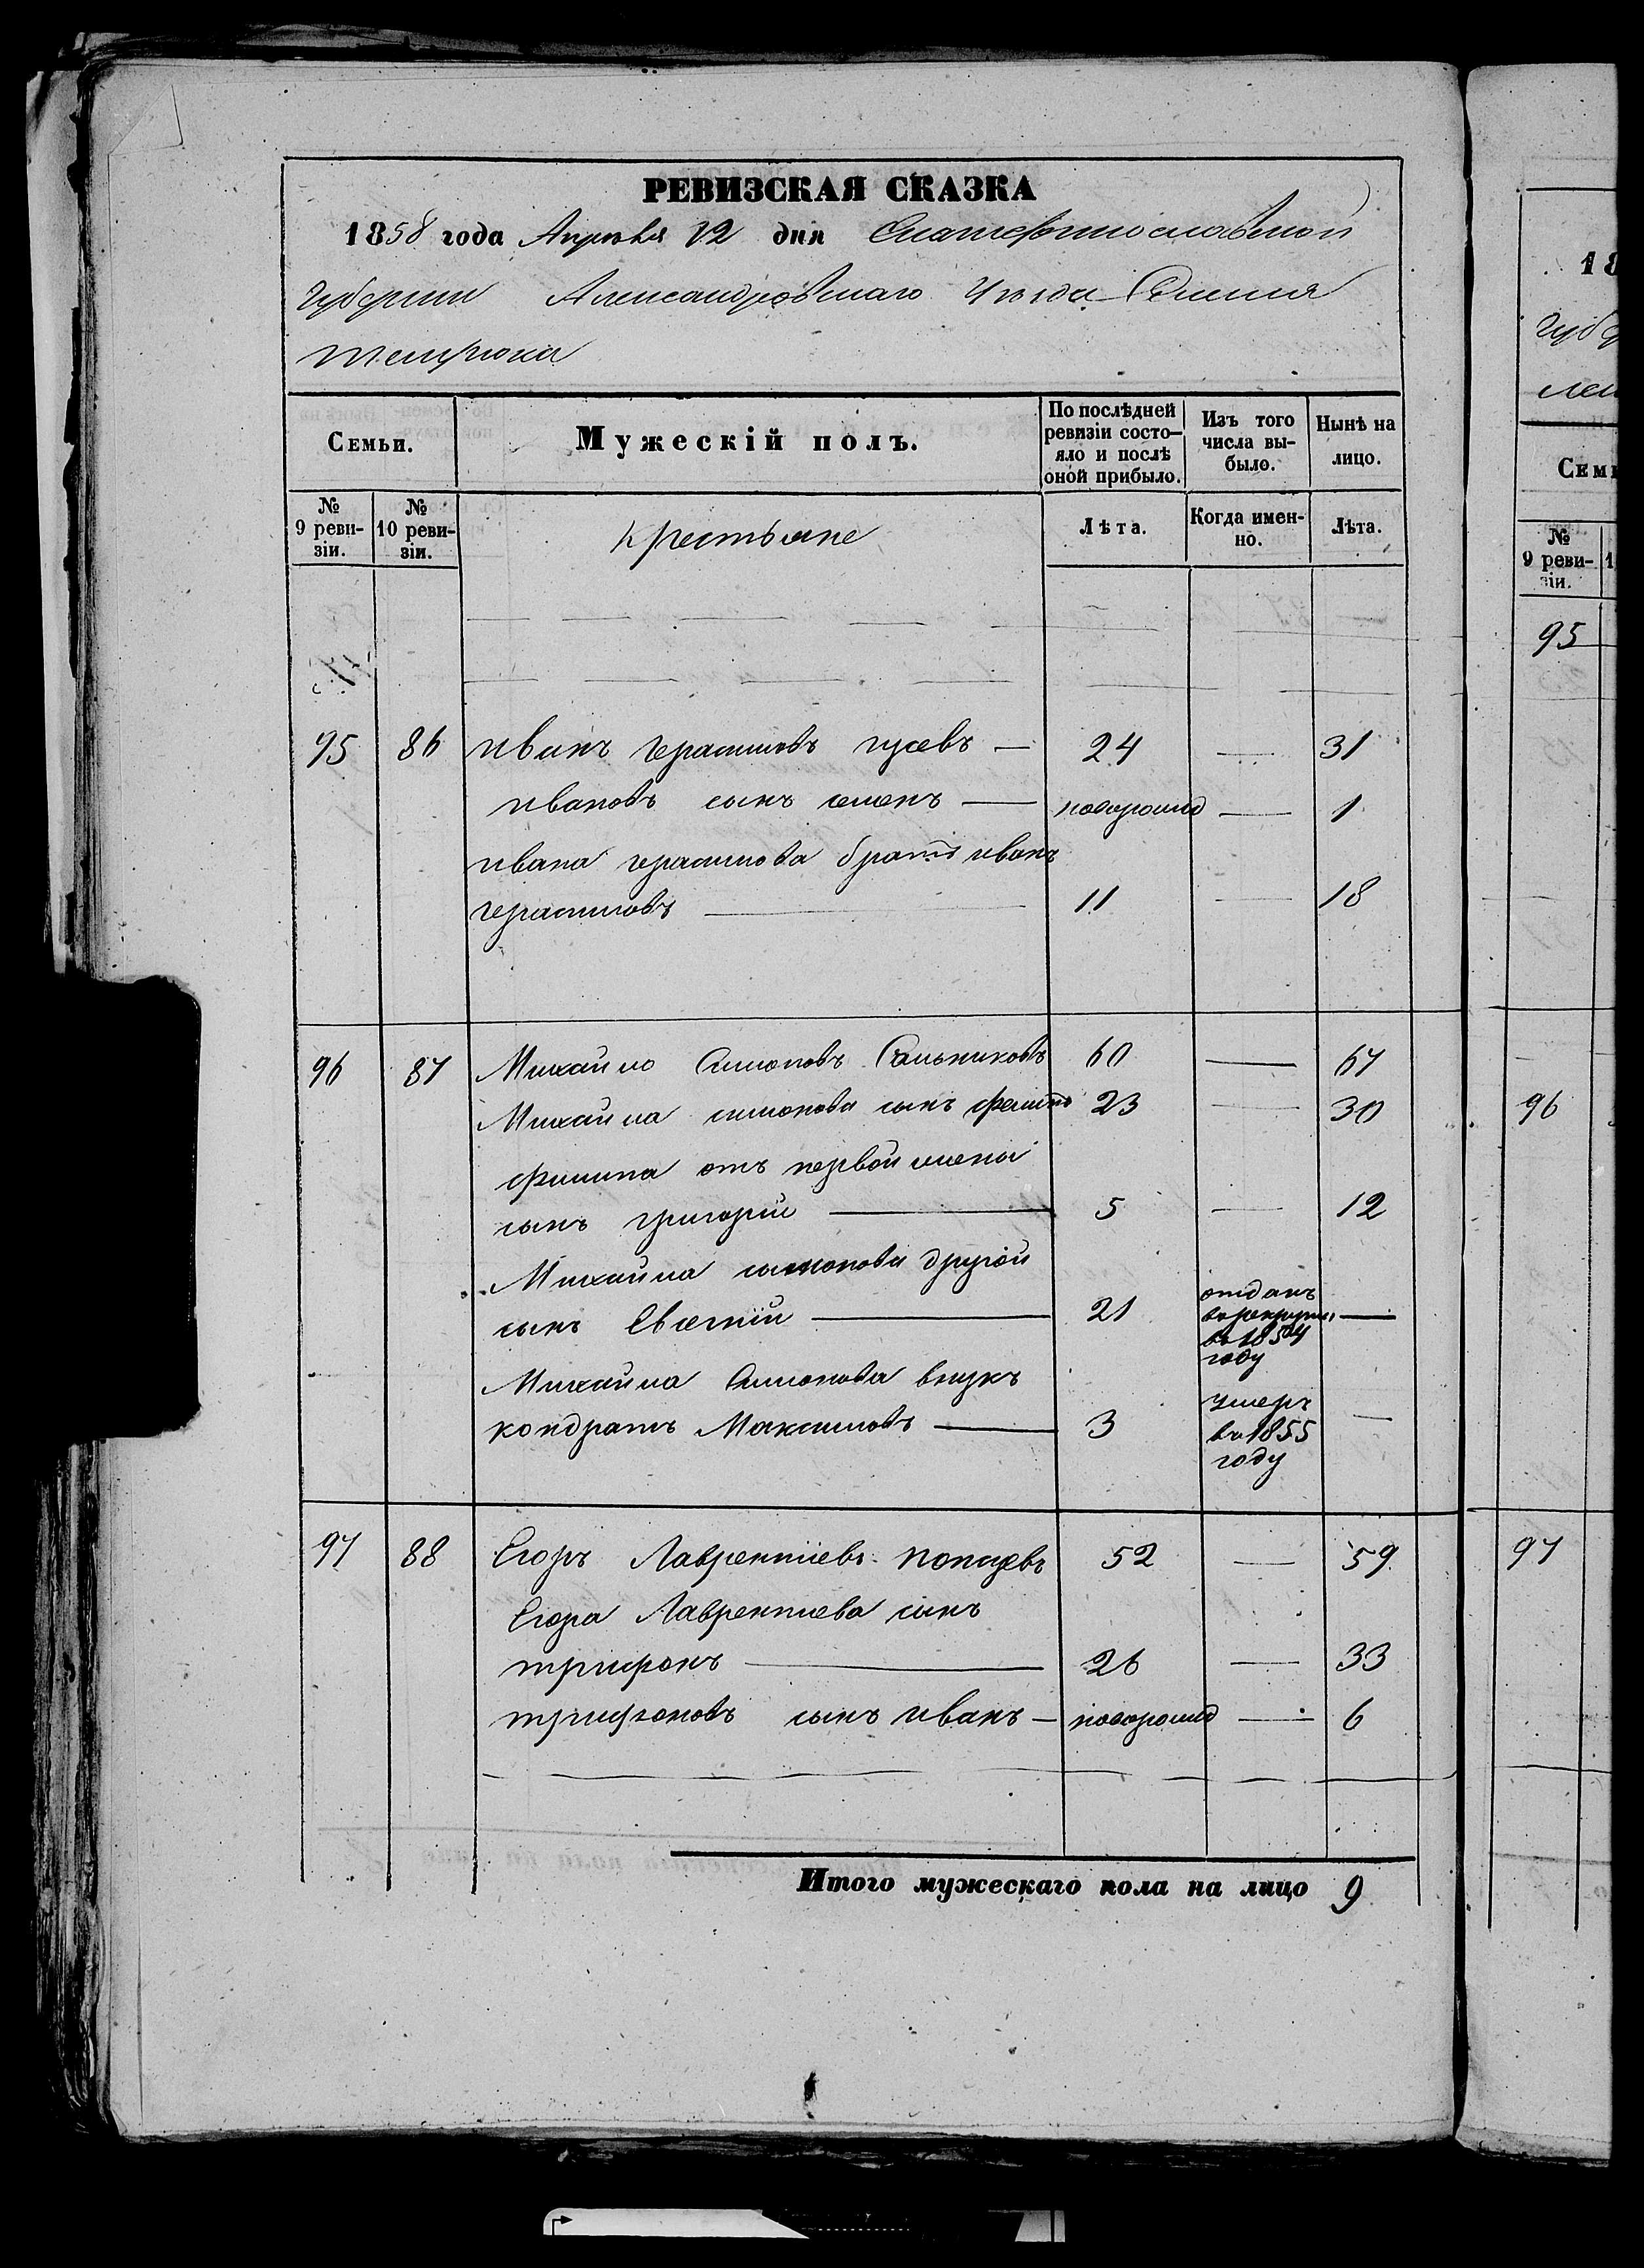 РЕВИЗСКАЯ СКАЗКА
1858 года Апреля 12 дня Екатеринославской
Губернии Александровскаго Уезда Селения
темрюка
Семьи.
Мужескій полъ.
По послѣдней ревизіи состо-яло и послѣ оной прибыло.
Изъ того числа вы-было.
Нынѣ на лицо.
№ 9 реви-зіи.
№ 10 реви-зіи.
крестьяне
Лѣта.
Когда имен-но.
Лѣта.
95 86 иванъ герасимовъ гусевъ — 24 — 31
ивановъ сынъ семенъ — новорожд — 1
ивана герасимова братъ иванъ
герасимовъ — 11 — 18
96 87 Михайло Симоновъ Сальниковъ 60 — 67
Михайла симонова сынъ филипъ 23 — 30
филипа отъ первой жены
сынъ григорій — 5 — 12
Михайла симонова другой
сынъ Евсегній — 21 отданъ в рекруты в 1854 году —
Михайла Симонова внукъ
кондратъ Максимовъ — 3 умеръ в 1855 году —
97 88 Егоръ Лаврентіевъ 52 — 59
Егора Лаврентиева сынъ
трифонъ — 26 — 33
трифоновъ сынъ иванъ — новорожд — 6
Итого мужескаго пола на лицо 9
18
Губ
Семь
№ 9 реви-зіи.
95
96
97